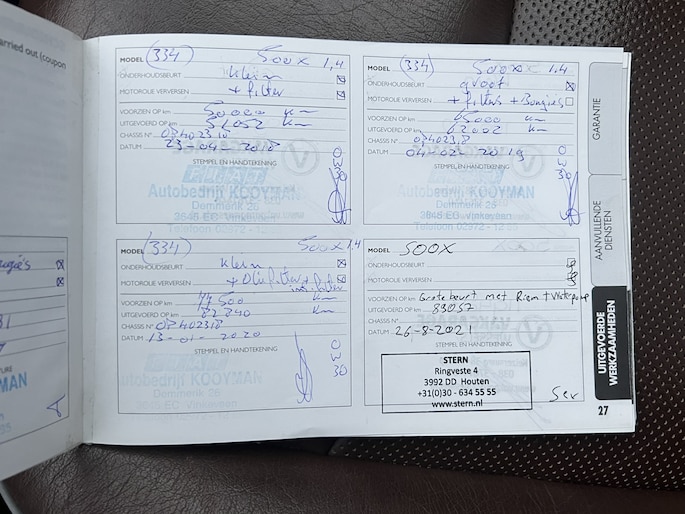 arried out (coupon
MODEL (334) 500X 1,4
ONDERHOUDSBEURT klein
MOTOROLIE VERVERSEN + filter
VOORZIEN OP km 50000 km
UITGEVOERD OP km 51052 km
CHASSIS N° 02402318
DATUM 23-04-2018
STEMPEL EN HANDTEKENING
Autobedrijf KOOYMAN
Demmerik 25
3645 EC Vinkeveen
Telefoon 02972 -
MODEL (334) 500X 1.4
ONDERHOUDSBEURT groot
MOTOROLIE VERVERSEN + filters + Bougies
VOORZIEN OP km 65000 km
UITGEVOERD OP km 62002 km
CHASSIS N° 02402318
DATUM 04-02-2019
STEMPEL EN HANDTEKENING
Autobedrijf KOOYMAN
Demmerik 25
3645 EC Vinkeveen
Telefoon 02972 -
MODEL (334) 500X 1.4
ONDERHOUDSBEURT klein
MOTOROLIE VERVERSEN + Oliefilter +
VOORZIEN OP km 77500 km
UITGEVOERD OP km km
CHASSIS N° 02402318
DATUM 13-01-2020
STEMPEL EN HANDTEKENING
Autobedrijf KOOYMAN
Demmerik 25
3645 EC Vinkeveen
MODEL 500X
ONDERHOUDSBEURT
MOTOROLIE VERVERSEN
VOORZIEN OP km Grote beurt met Riem + Waterpomp
UITGEVOERD OP km 83057
CHASSIS N°
DATUM 26-8-2021
STEMPEL EN HANDTEKENING
STERN
Ringveste 4
3992 DD Houten
+31(0)30 - 634 55 55
www.stern.nl
GARANTIE
AANVULLENDE
DIENSTEN
UITGEVOERDE
WERKZAAMHEDEN
27